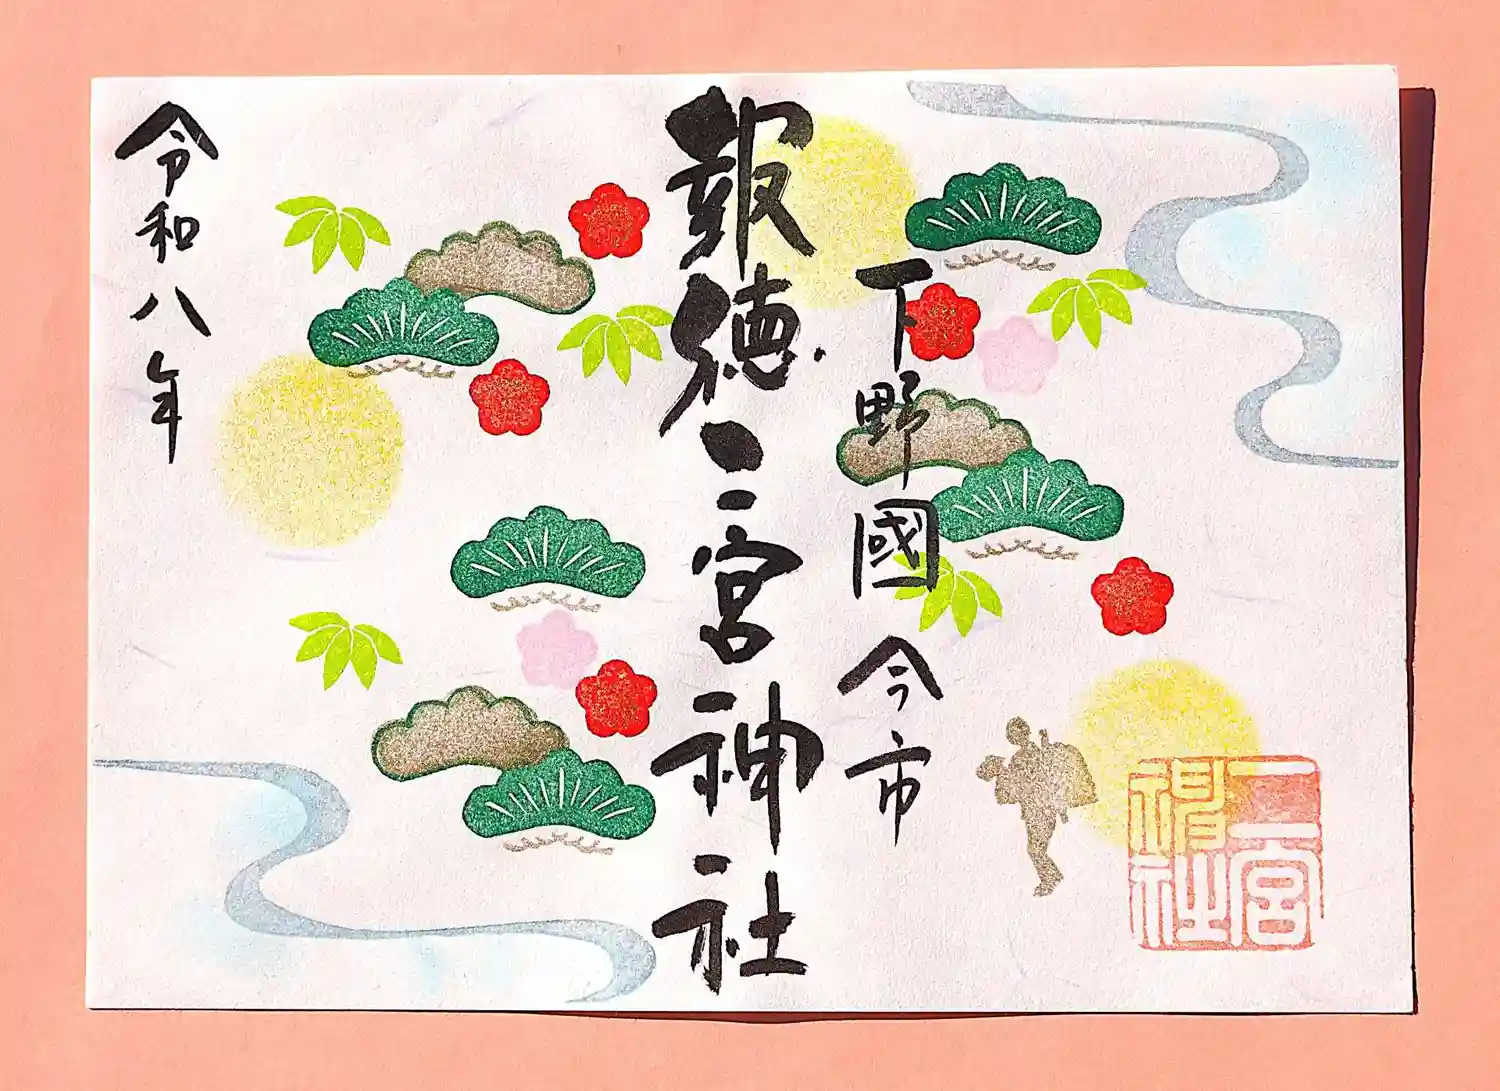 下野國 今市
報徳二宮神社
令和八年
二宮神社